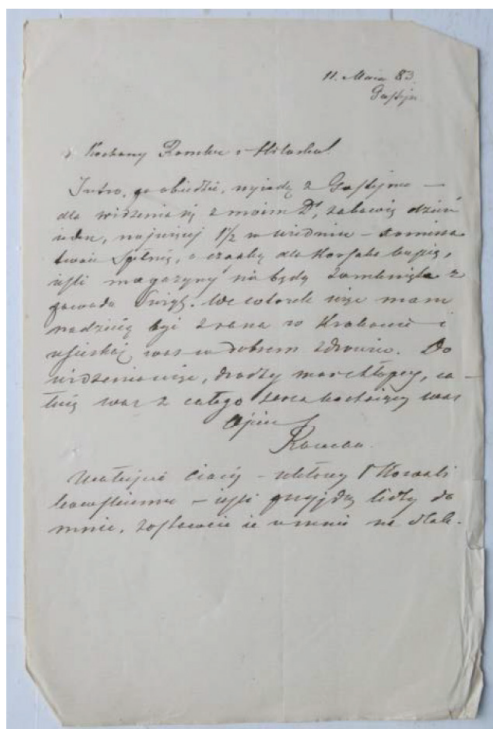 11. Maja 83.
Kochany Romku i Michasiu!
Jutro, po obiedzie, wyjadę z
dla widzenia się z moim Dr, zabawię dzień
jeden, najwięcej 1/2 w Wiedniu –
twoje spełnię, a czapkę dla kupię,
jeśli magazyny nie będą zamknięte z
powodu Świąt. We wtorek więc mam
nadzieję być z rana w Krakowie i
uściskać was w dobrem zdrowiu. Do
widzenia więc, drodzy moi chłopcy, ca-
łuję was z całego serca kochający was
Ojciec
Ucałujcie Ciocię – ukłony
– jeśli przyjdą listy do
mnie, zostawcie je u mnie na stole.